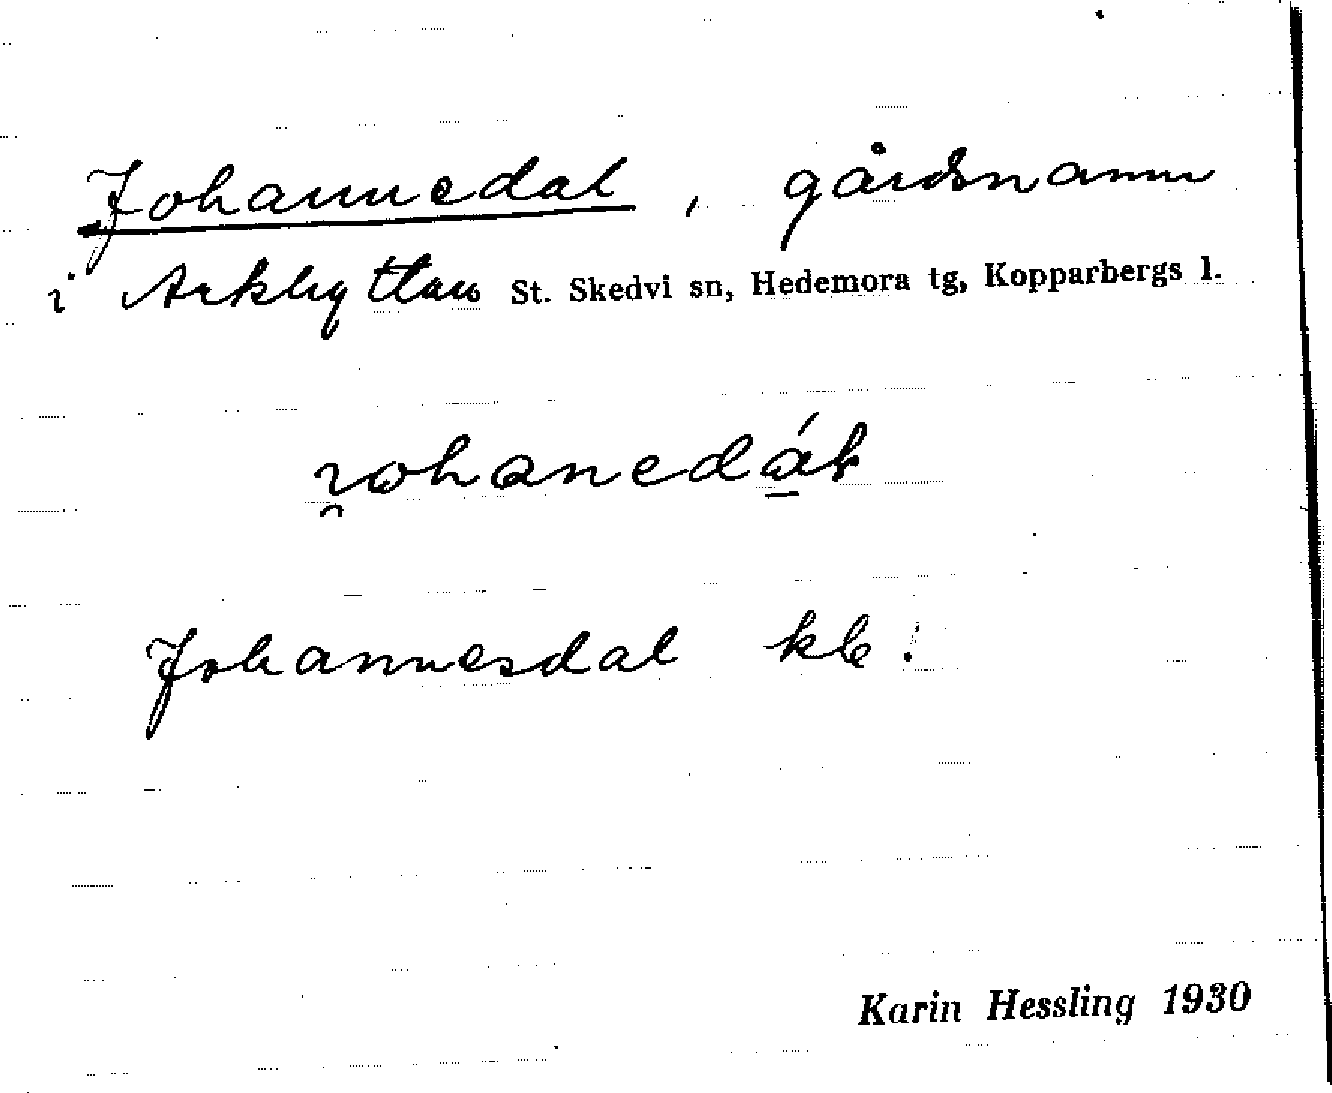 Johannedal, gårdsnamn
i Arkhyttan St. Skedvi sn, Hedemora tg, Kopparbergs l.
Johannesdal kb!
Karin Hessling 1930